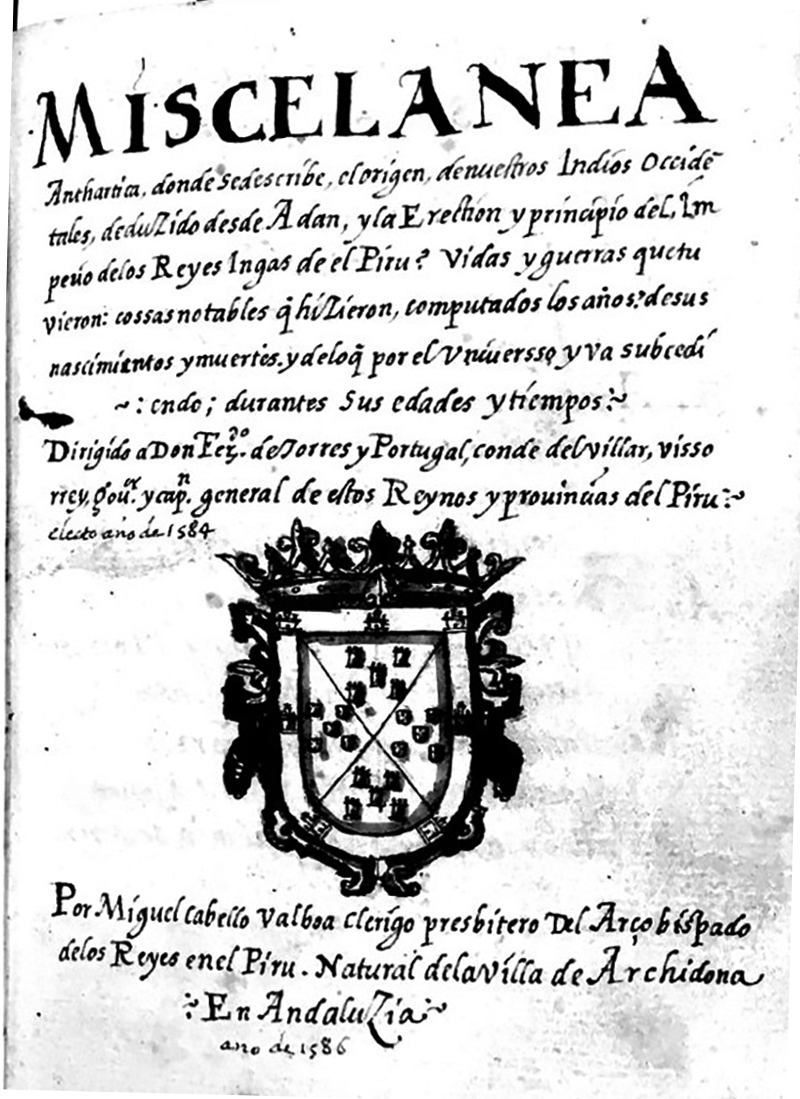 MISCELANEA
Anthartica, donde se describe, el origen, de nuestros Indios Occidẽ
tales, deduzido desde Adan, y la Erection y principio del, Im
perio de los Reyes Ingas de el Piru? Vidas y guerras que tu
vieron: cossas notables q̃ hizieron, computados los años? de sus
nascimientos y muertes. y de loq̃ por el Universso, y va subcedi
~:endo; durantes sus edades y tiempos:~
Dirigido a Don Fer.do de Torres y Portugal, conde del villar, visso
rrey, gou.or y cap.n general de estos Reynos y prouincias del Piru:~
electo año de 1584
Por Miguel Cabello Valboa clerigo presbitero Del Arçobispado
de los Reyes en el Piru. Natural de la villa de Archidona
:~ En Andaluzia :~
año de 1586